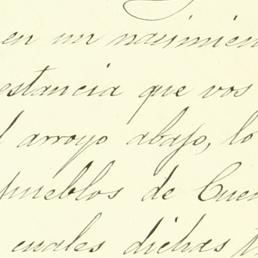 en un nacimien
estancia que vos
arroyo abajo, lo
pueblos de Cuer
cuales dichas